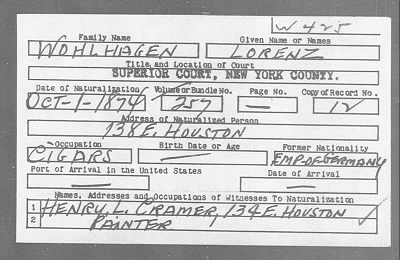 W425
Family Name Given Name or Names
WOHLHAGEN LORENZ
Title and Location of Court
SUPERIOR COURT, NEW YORK COUNTY.
Date of Naturalization Volume or Bundle No. Page No. Copy of Record No.
OCT-1-1874 257 — 12
Address of Naturalized Person
138 E. HOUSTON
Occupation Birth Date or Age Former Nationality
CIGARS — EMP. OF GERMANY
Port of Arrival in the United States Date of Arrival
— —
Names, Addresses and Occupations of Witnesses To Naturalization
1 HENRY L. CRAMER, 134 E. HOUSTON ✓
2 PAINTER